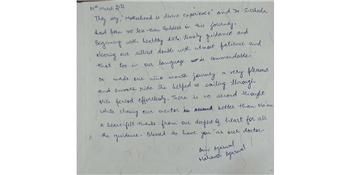 They say, "Motherhood is divine experience" and Dr.
had been no less than Goddess in this journey.
Beginning with healthy diets, timely guidance and
clearing our silliest doubts with utmost patience and
that too in our language was commendable.
Dr. made our nine month journey a very pleasant
and smooth ride. She helped us sailing through
this period effortlessly. There is no second thought
while chosing our doctor is better than
A heartfelt thanks from our depths of heart for all
the guidance. Blessed to have you as our doctor.
Agarwal
Agarwal